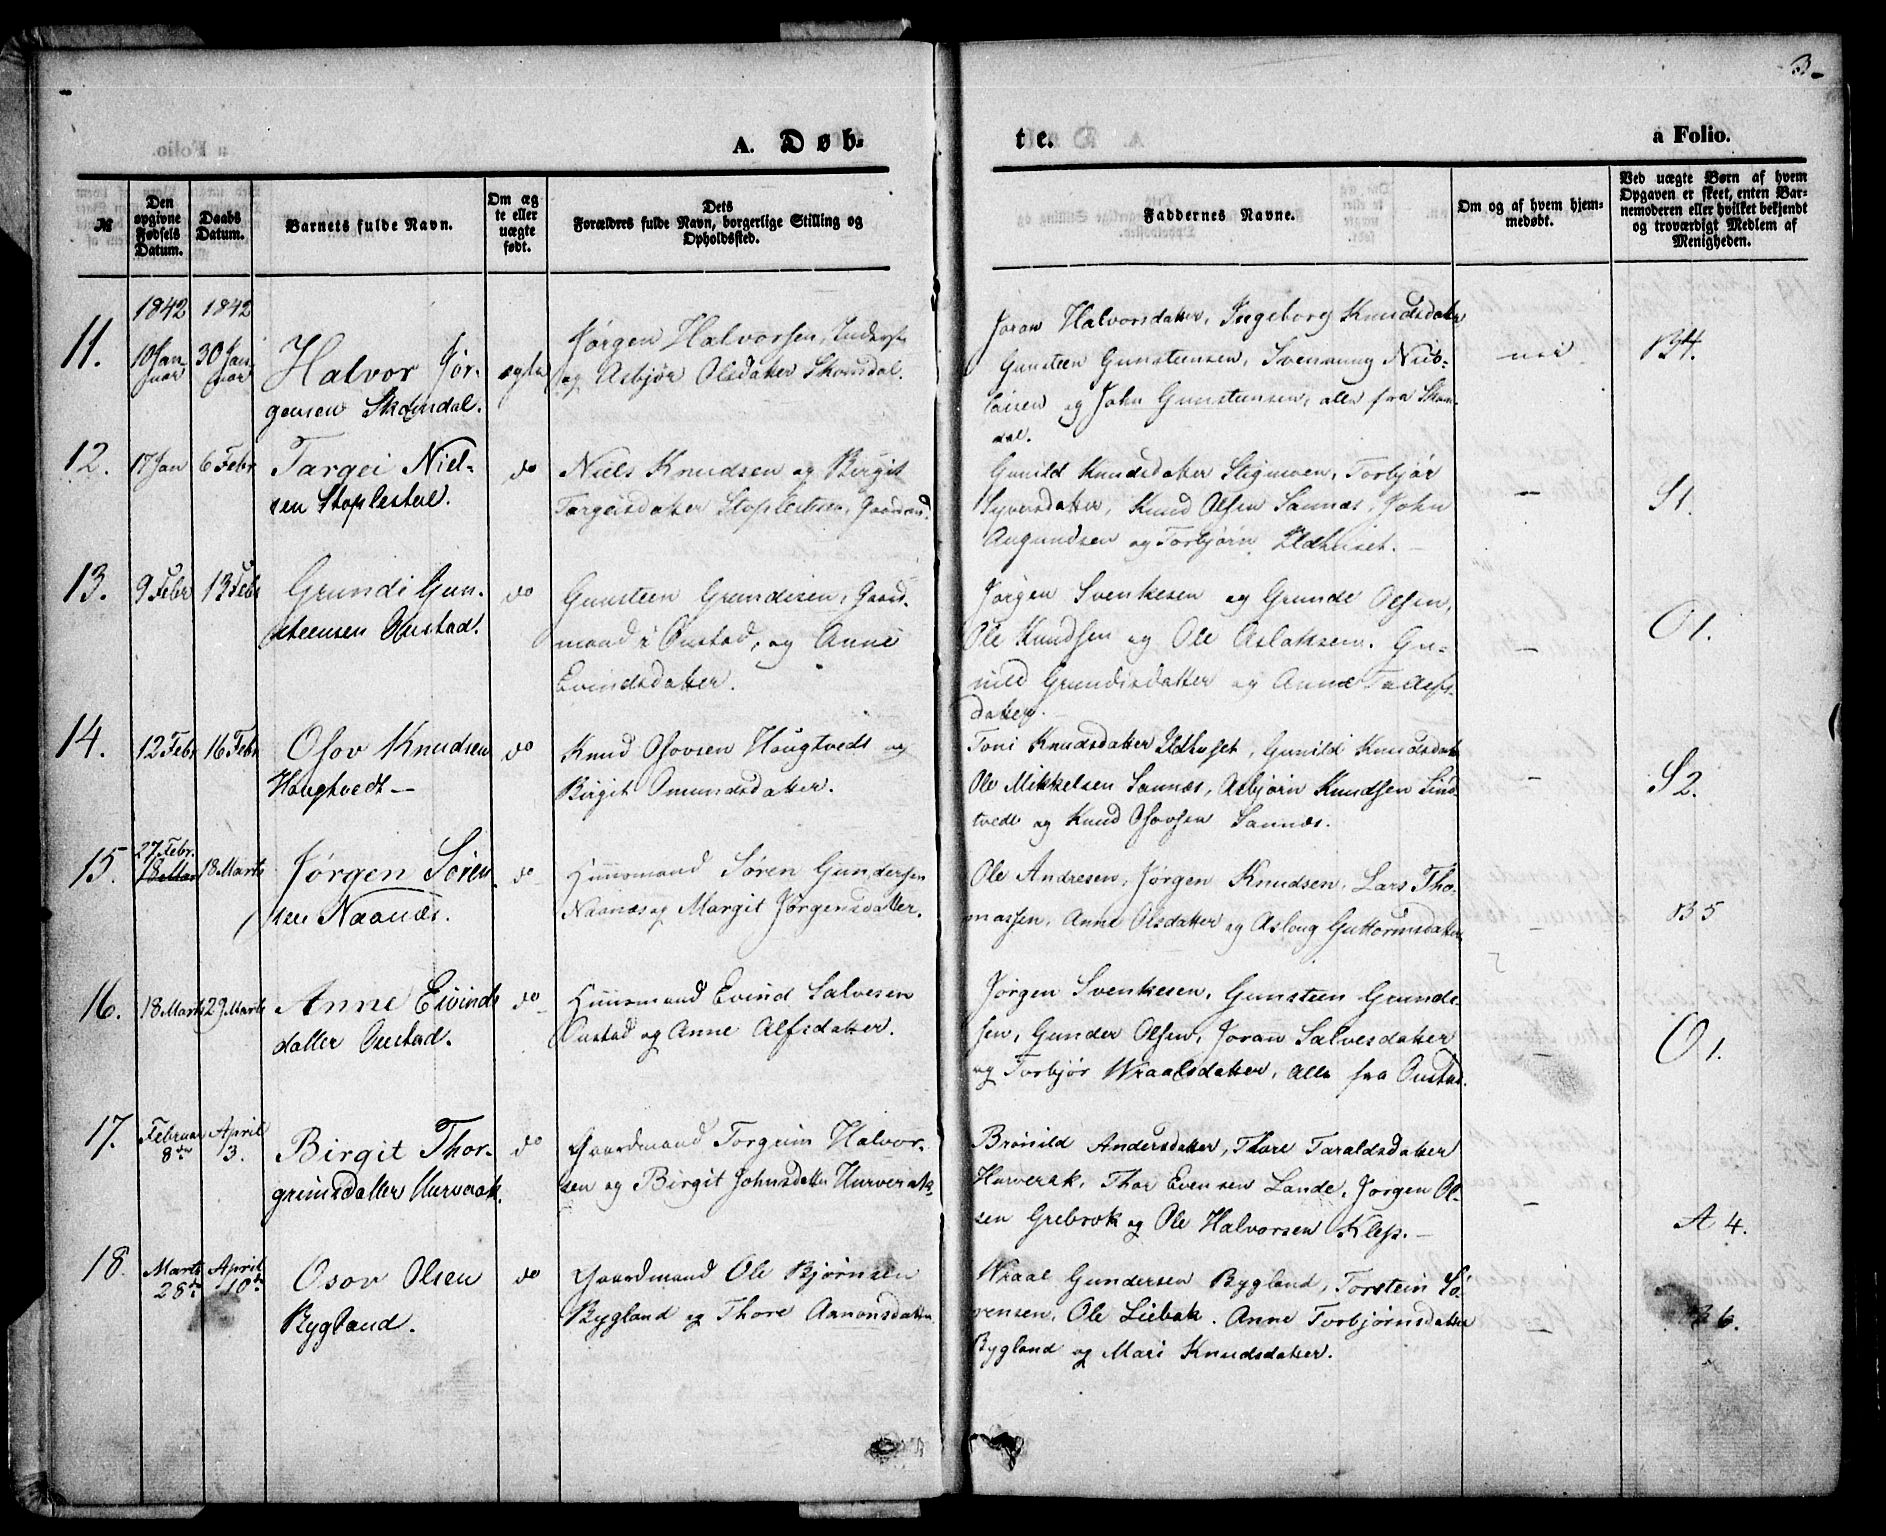 3.
A. Døb-
te.
a Folio.
№
Den opgivne Fødsels Datum.
Daabs Datum.
Barnets fulde Navn.
Om ægte eller uægte født.
Dets Forældres fulde Navn, borgerlige Stilling og Opholdssted.
Faddernes Navne.
Om og af hvem hjemmedøbt.
Ved uægte Børn af hvem Opgaven er skeet, enten Barnemoderen eller hvilket bekjendt og troværdigt Medlem af Menigheden.
1842 1842
11.
10 Jan
uar
30 Jan
uar
Halvor Jør-
gensen Skomdal.
ægte
Jørgen Halvorsen,
og Asbjør Olsdatter Skomsdal.
Joran Halvorsdatter, Ingeborg Knudsdatter
Gunsteen Gunsteensen, Svennung Nico-
laisen og John Gunsteensen, alle fra Skom-
dal.
nei
B4.
12.
17 Jan
6 Febr
Targei Niel-
sen Stoplesteen.
do
Niels Knudsen og Birgit
Targeisdatter Stoplesteen, Gaardmd.
Gunild Knudsdatter Stigmoen, Torbjør
Syversdatter, Knud Olsen Sannæs, John
Augundsen og Torbjørn Ildhuset. —
—
S1.
13.
9 Febr
13 Febr
Grundi Gun-
steensen Oustad.
do
Gunsteen Grundisen, Gaard-
mand i Oustad, og Anne
Evindsdatter.
Jørgen Svenkesen og Grunde Olsen,
Ole Knudsen og Ole Aslaksen. Gu-
nild Grundisdatter og Anne Tallefs-
datter.
—
O1.
14.
12 Febr
16 Febr
Osov Knudsen
Hougtvedt —
do
Knud Osovsen Hougtvedt og
Birgit Omundsdatter.
Toni Knudsdatter Ildhuset, Gunild Knudsdatt
Ole Mikkelsen Sannæs, Asbjørn Knudsen Lind-
tvedt og Knud Osovsen Sannæs.
—
S2.
15.
27 Febr.
18 Mar
18 Marts
Jørgen Søren-
sen Naanæs.
do
Huusmand Søren Gundersen
Naanæs og Margit Jørgensdatter.
Ole Andresen, Jørgen Knudsen, Lars Tho-
massen, Anne Olsdatter og Asloug Guttormsdatter
—
B5
16.
18 Marts
29 Marts
Anne Eivinds
datter Oustad.
do
Huusmand Evind Salvesen
Oustad og Anne Alfsdatter.
Jørgen Svenkesen, Gunsteen Grundi-
sen, Gunder Olsen, Joran Salvesdatter
og Torbjør Wraalsdatter, alle fra Oustad.
—
O1.
17.
Februar
8de
April
3.
Birgit Thor-
grimsdatter Hurverak.
do
Gaardmand Torgrim Halvor-
sen og Birgit Johnsdatter Hurverak.
Brønild Andersdatter, Thore Taraldsdatter
Hurverak, Thor Evensen Lande, Jørgen Ol-
sen Grebrok og Ole Halvorsen Klep. —
—
A4.
18.
Marts
28de
April
10de
Osov Olsen
Bygland.
do
Gaardmand Ole Bjørnsen
Bygland og Thore Aanonsdatter
Wraal Gundersen Bygland, Torstein Sø-
rensen, Ole Liebak. Anne Torbjørnsdatter
Bygland og Mari Knudsdatter.
—
B6.